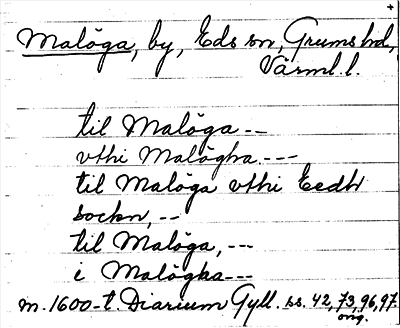 Malöga, by, Eds sn, Grums hd,
Värml. l.
til Malöga --
vthi Malögha. ---
til Malöga vthi Eedh
sockn, --
til Malöga, ---
i Malögha ---
m. 1600-t. Diarium Gyll. ss. 42, 73, 96, 97
orig.